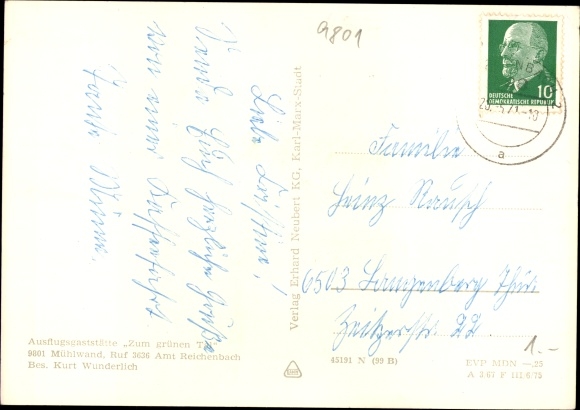 9801
Liebe Christine!
Sende Euch herzliche Grüße
von einer Busfahrt.
Familie
Ausflugsgaststätte „Zum grünen Tal"
9801 Mühlwand, Ruf 3636 Amt Reichenbach
Bes. Kurt Wunderlich
Verlag Erhard Neubert KG, Karl-Marx-Stadt
10
DEUTSCHE
DEMOKRATISCHE REPUBLIK
a
Familie
Heinz Rausch
6503 Langenberg Thür.
Zeitzerstr. 22
1.-
45191 N (99 B)
EVP MDN —,25
A 3 67 F III 6 73